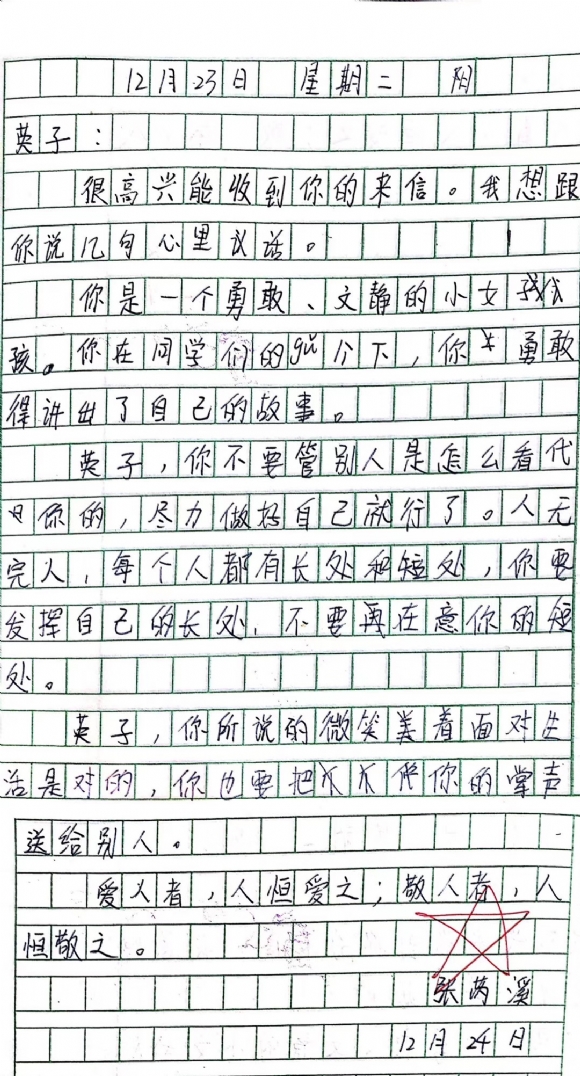 12月23日 星期二 阴
英子：
很高兴能收到你的来信。我想跟
你说几句心里议话。
你是一个勇敢、文静的小女
孩。你在同学们的gǔ个下，你勇敢
得讲出了自己的故事。
英子，你不要管别人是怎么看代
你的，尽力做好自己就行了。人无
完人，每个人都有长处和短处，你要
发挥自己的长处，不要再在意你的短
处。
英子，你所说的微笑着面对生
活是对的，你也要把你的掌声
送给别人。
爱人者，人恒爱之；敬人者，人
恒敬之。
张芮溪
12月24日